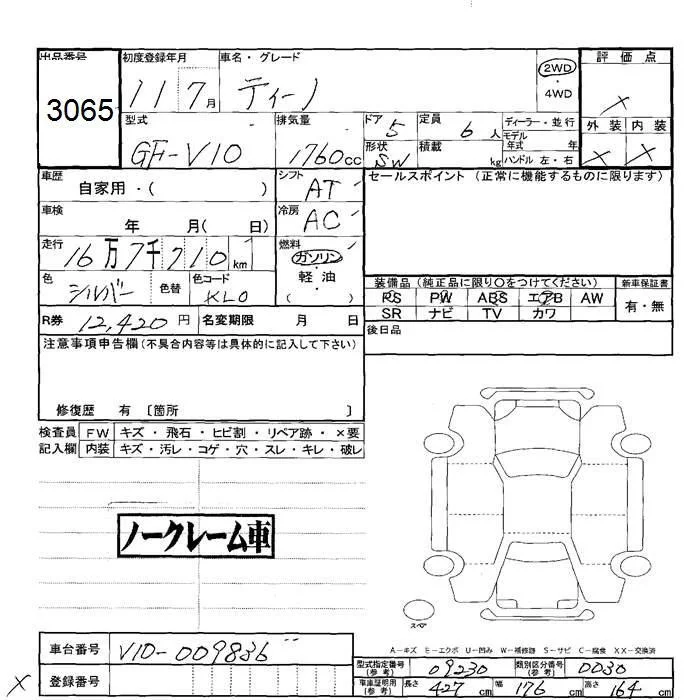 出品番号 3065
初度登録年月 11 7月
車名・グレード ティーノ
2WD・4WD
評価点 ×
外装 × 内装 ×
型式 GF-V10
排気量 1760cc
ドア 5 形状 SW
定員 6人 積載 kg
ディーラー・並行
モデル年式 年
ハンドル 左・右
車歴 自家用・( )
シフト AT
セールスポイント (正常に機能するものに限ります)
車検 年 月( 日)
冷房 AC
走行 16万7千710km
燃料 ガソリン・軽油 ( )
色 シルバー 色替 色コード KL0
装備品 (純正品に限り○をつけてください) 新車保証書
PS PW ABS エアB AW 有・無
SR ナビ TV カワ
R券 12,420円 名変期限 月 日
後日品
注意事項申告欄(不具合内容等は具体的に記入して下さい)
修復歴 有 〔箇所 〕
検査員 FW キズ・飛石・ヒビ割・リペア跡・×要
記入欄 内装 キズ・汚レ・コゲ・穴・スレ・キレ・破レ
ノークレーム車
スペア
A-キズ E-エクボ U-凹み W-補修跡 S-サビ C-腐食 XX-交換済
車台番号 V10-009836
型式指定番号(参考) 09230 類別区分番号(参考) 0030
× 登録番号
車庫証明用(参考) 長さ 427cm 幅 176cm 高さ 164cm